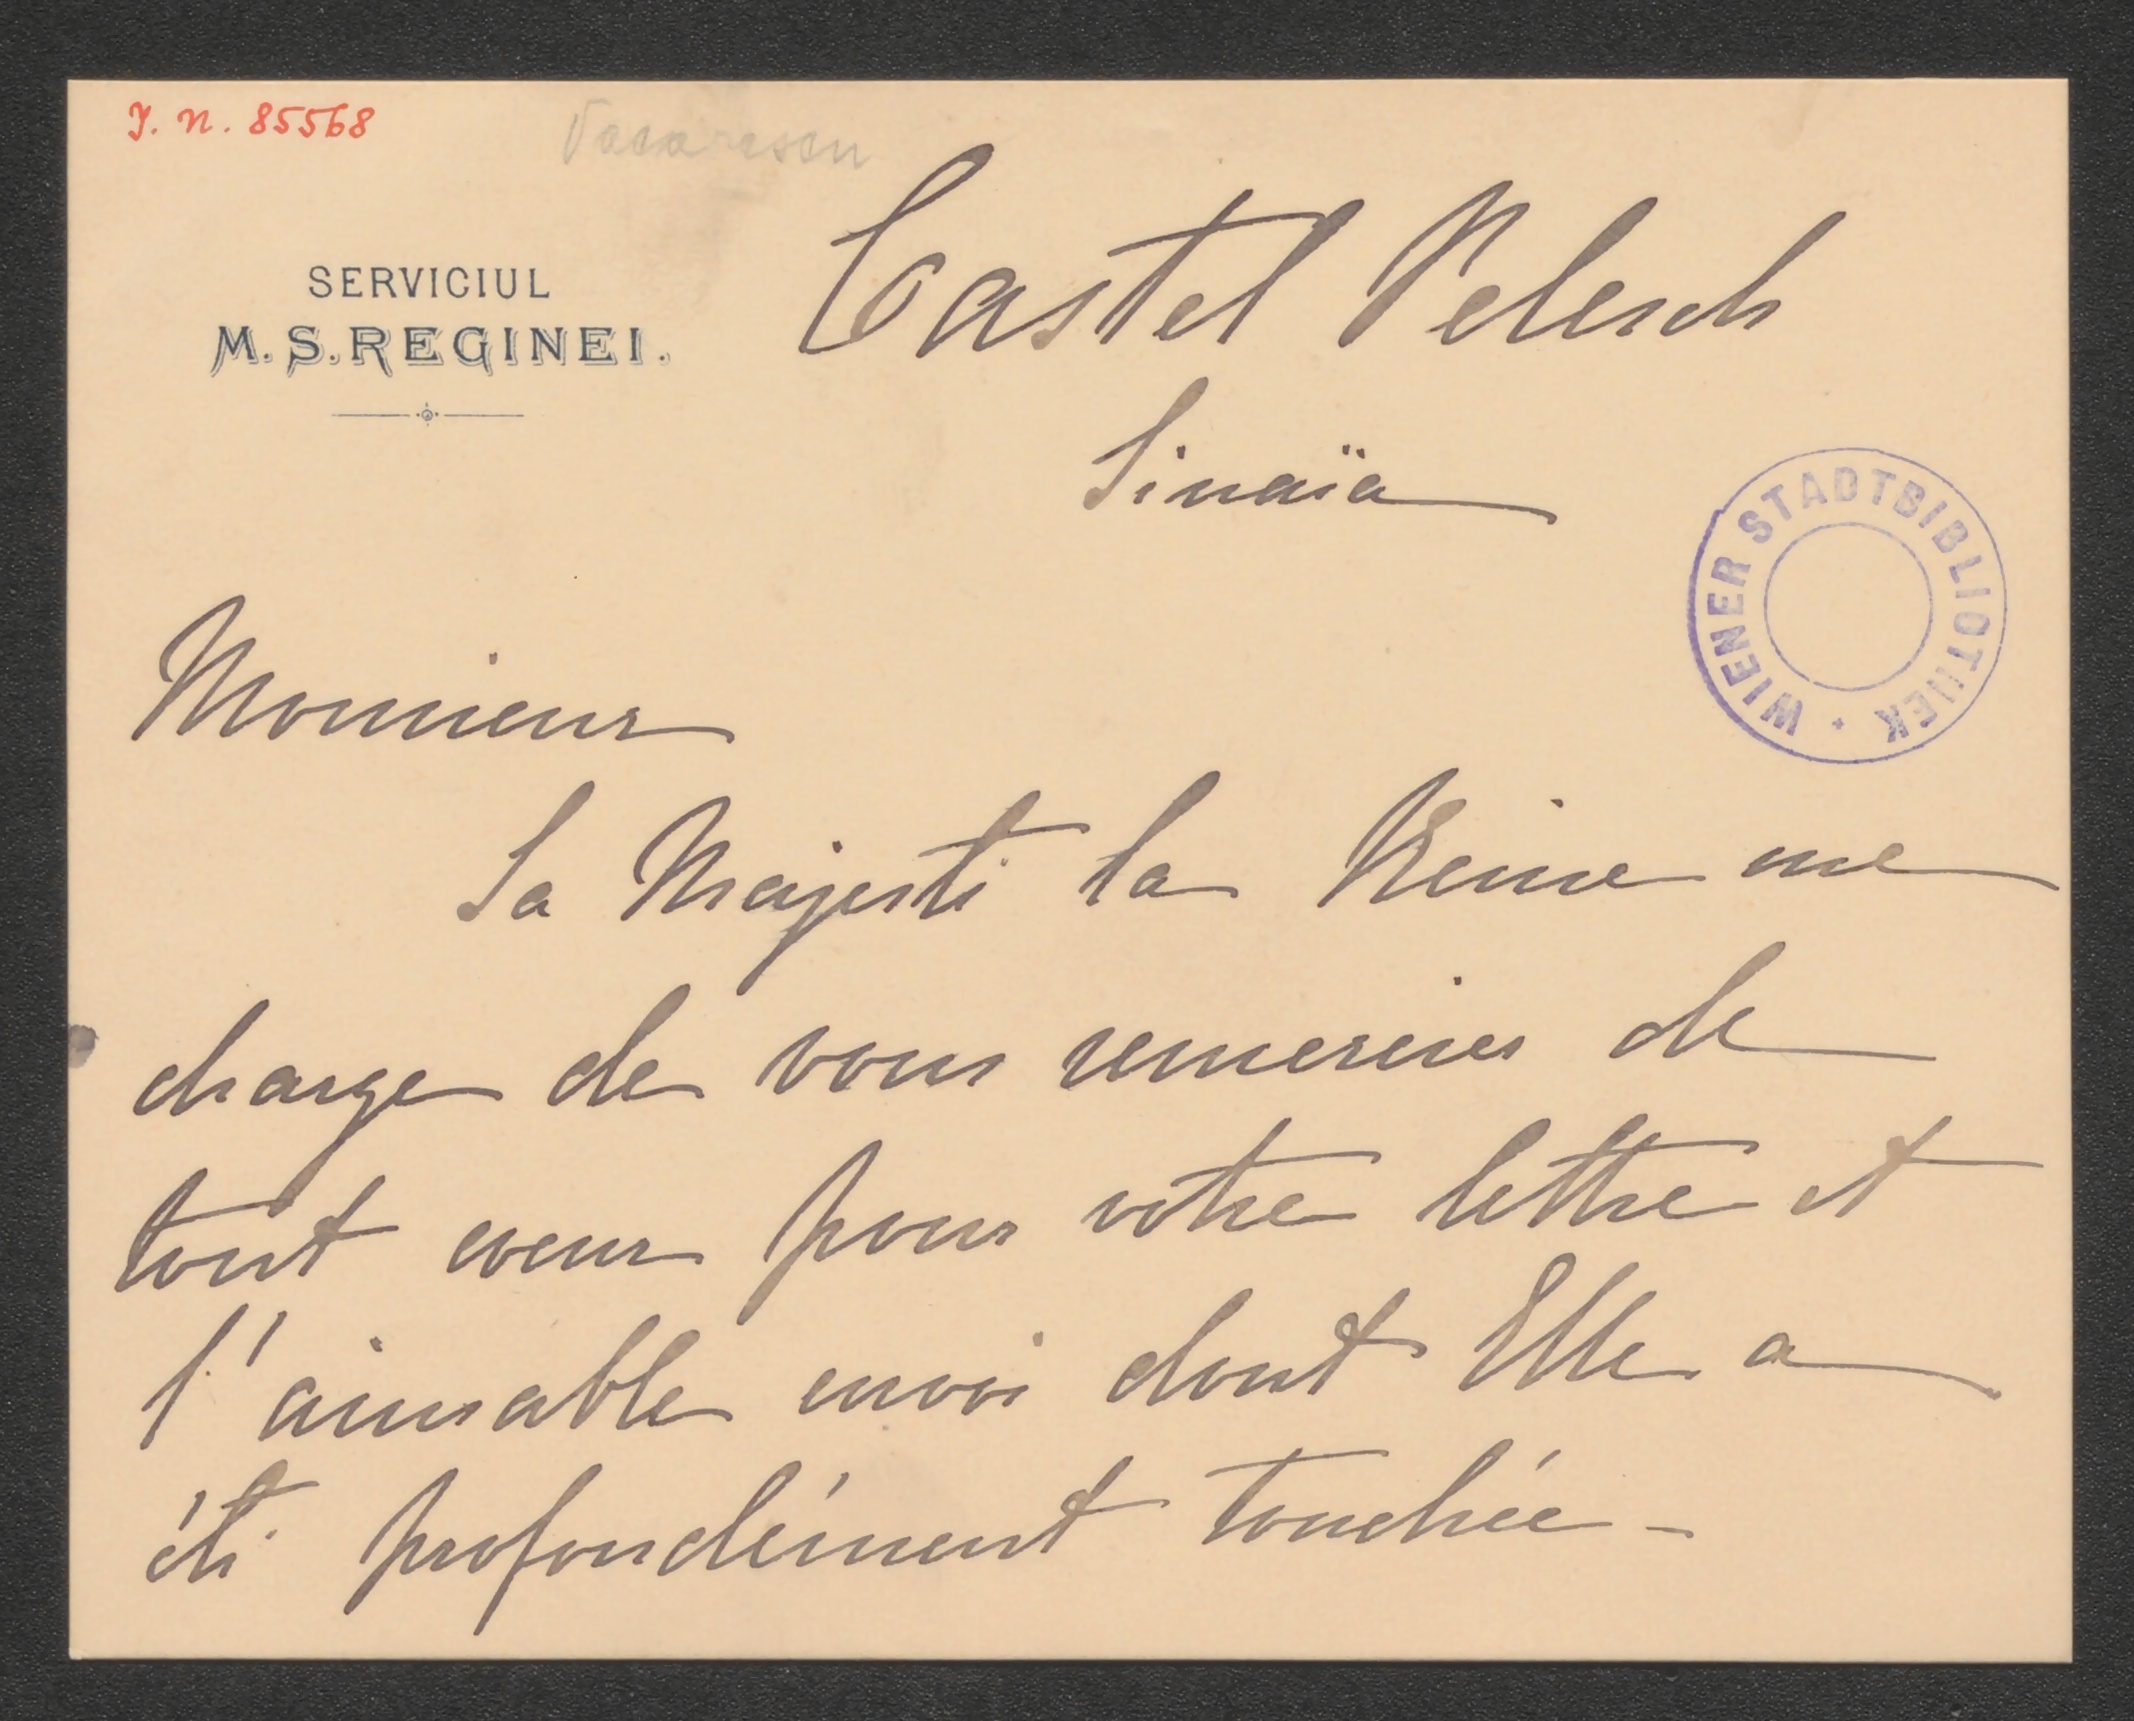 J. N. 85568
Vacarescu
SERVICIUL
M. S. REGINEI.
Castel Pelesch
Sinaïa
WIENER STADTBIBLIOTHEK
Monsieur
Sa Majesté la Reine me
charge de vous remercier de
tout cœur pour votre lettre et
l'aimable envoi dont Elle a
été profondément touchée -